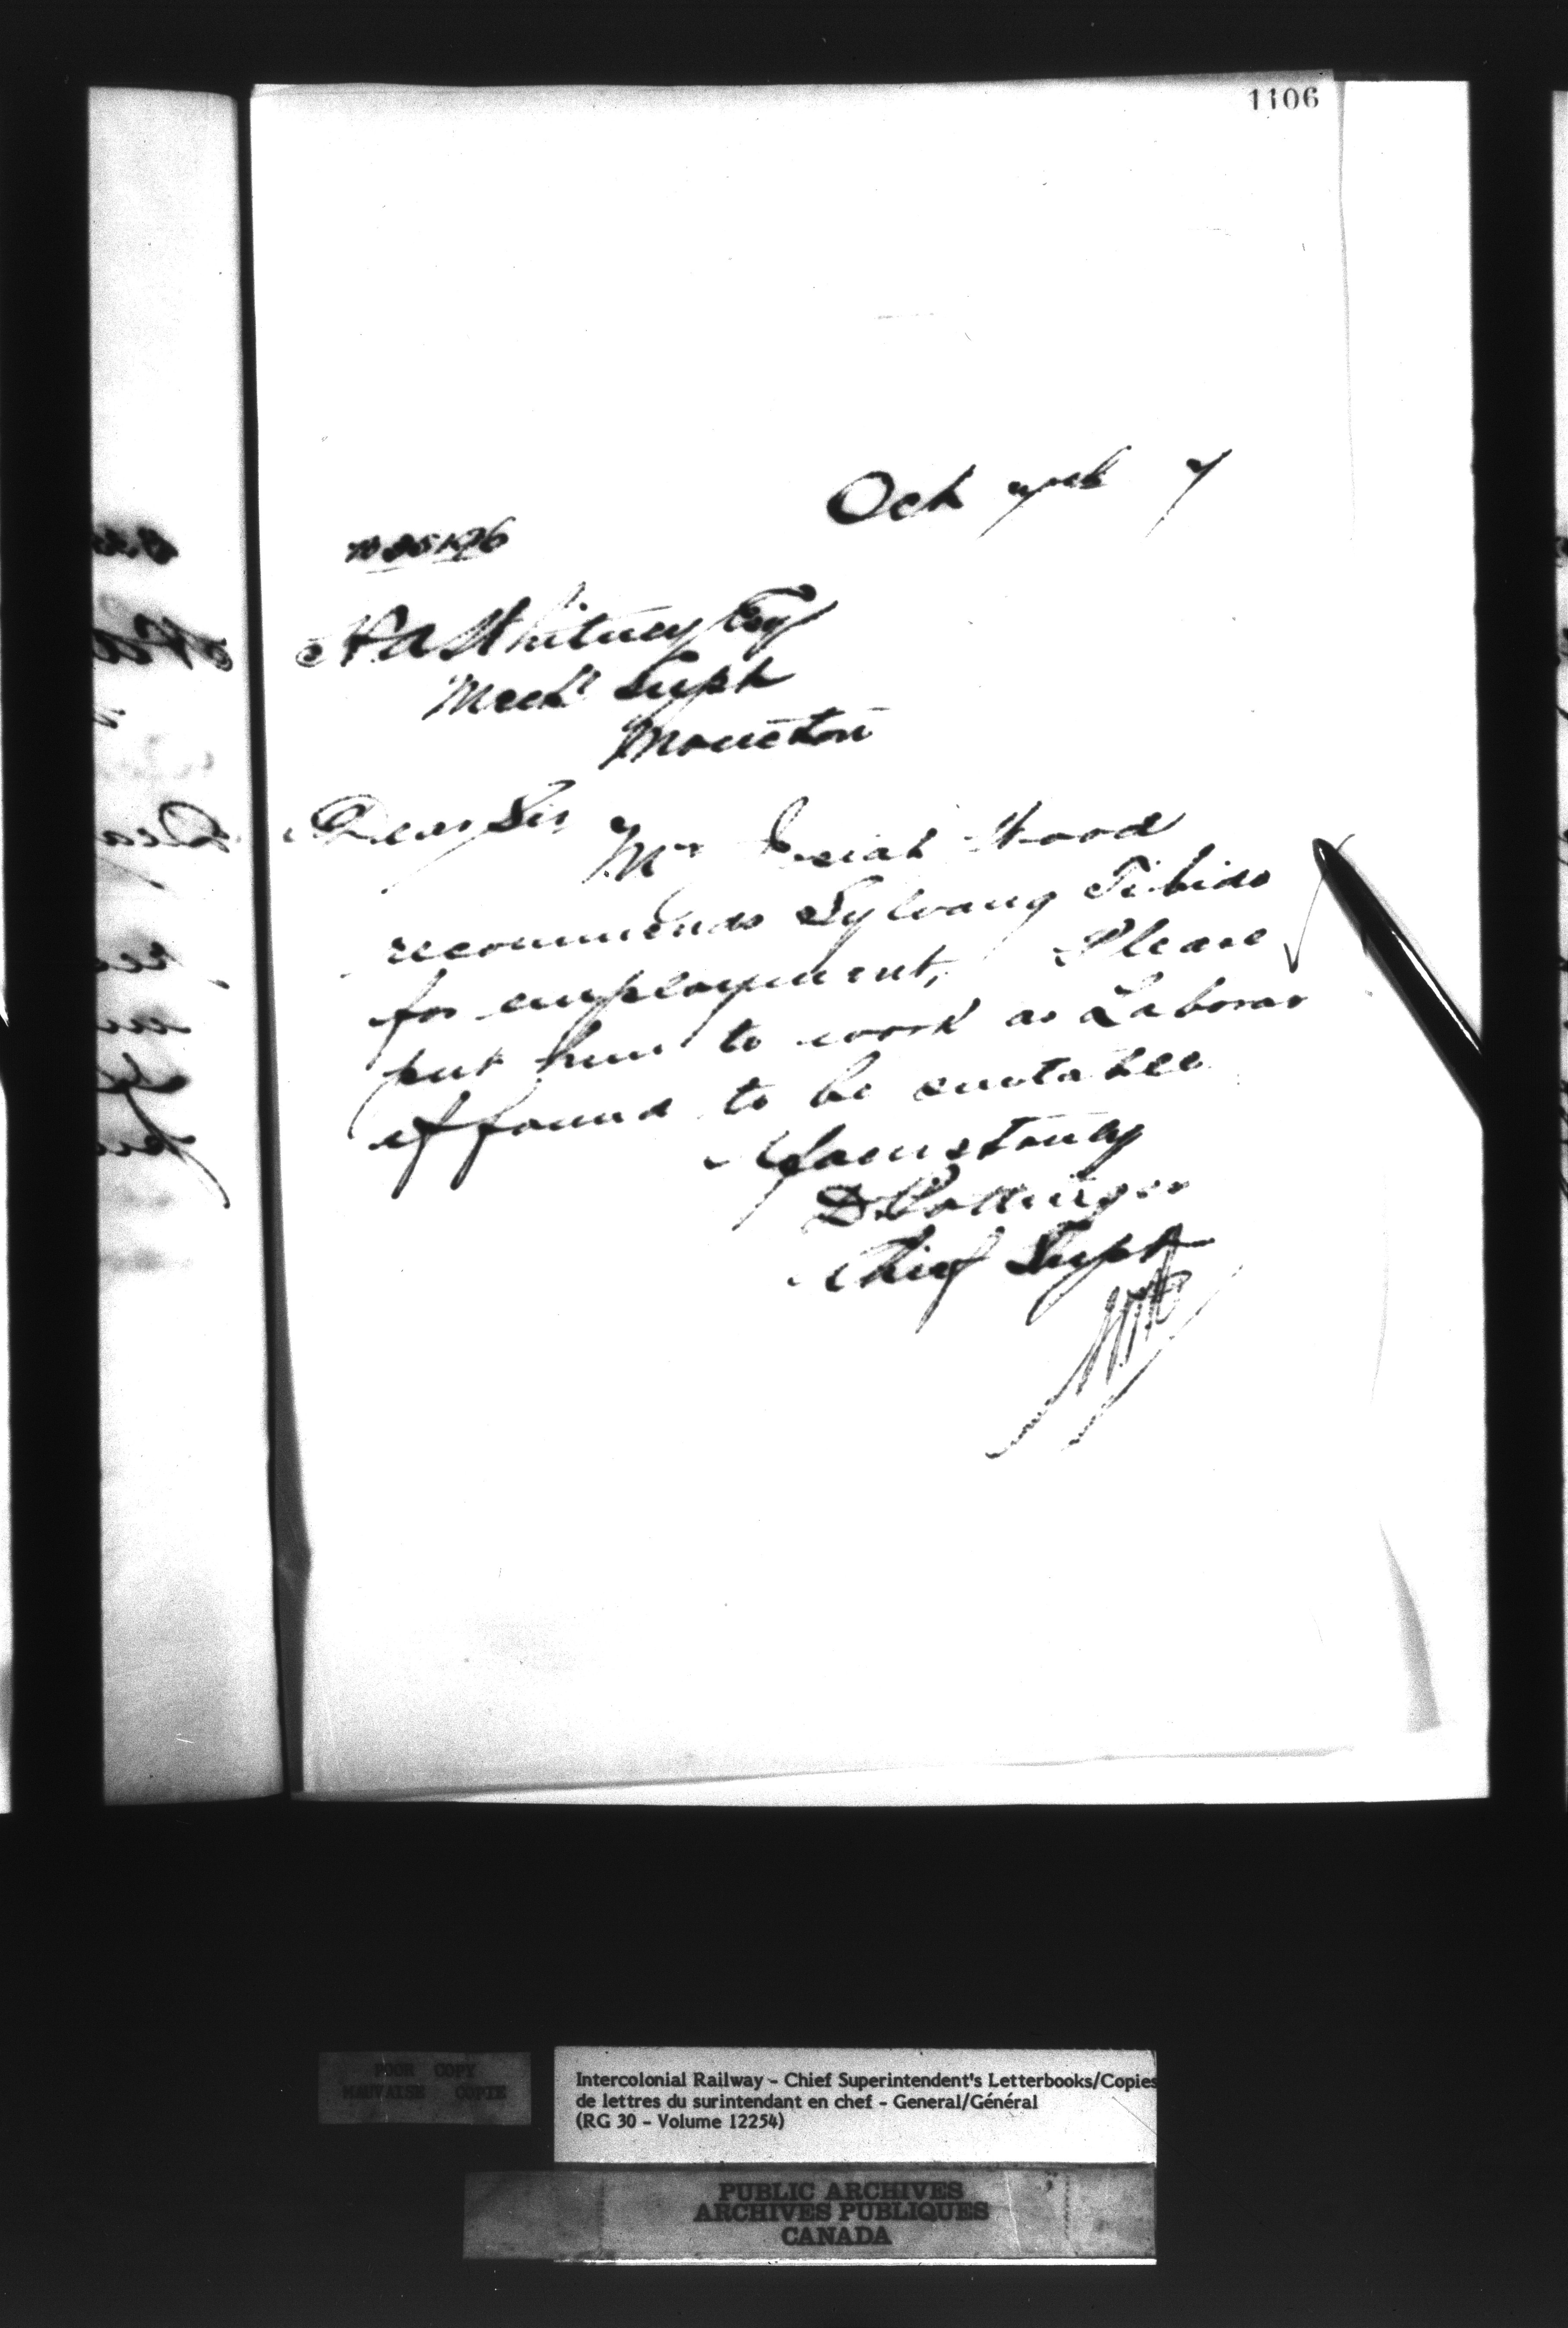 1106
Oct 7
H A Whitney Esq
Mech Supt
Moncton
Dear Sir
Mr Josiah Wood
recommends Sylvany Tibido
for employment, Please
put him to work as Laborer
if found to be suitable
Yours truly
D Pottinger
Chief Supt
POOR COPY
MAUVAISE COPIE
Intercolonial Railway - Chief Superintendent's Letterbooks/Copies
de lettres du surintendant en chef - General/Général
(RG 30 - Volume 12254)
PUBLIC ARCHIVES
ARCHIVES PUBLIQUES
CANADA